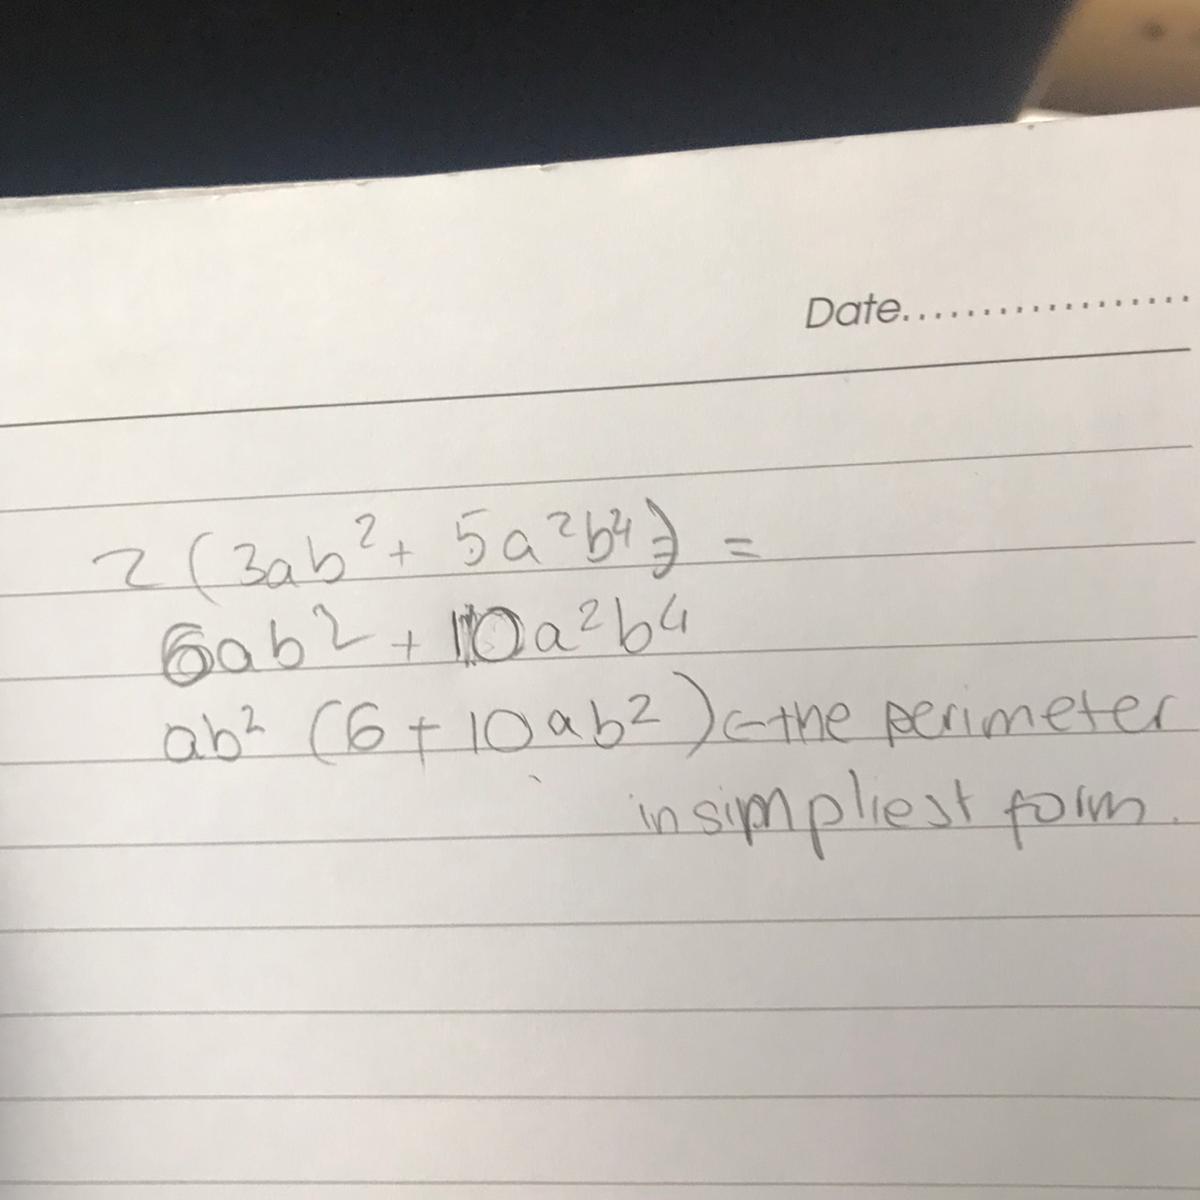 Date..................
2 (3ab² + 5a²b⁴) =
6ab² + 10a²b⁴
ab² (6 + 10ab²) ← the perimeter
in simpliest form.